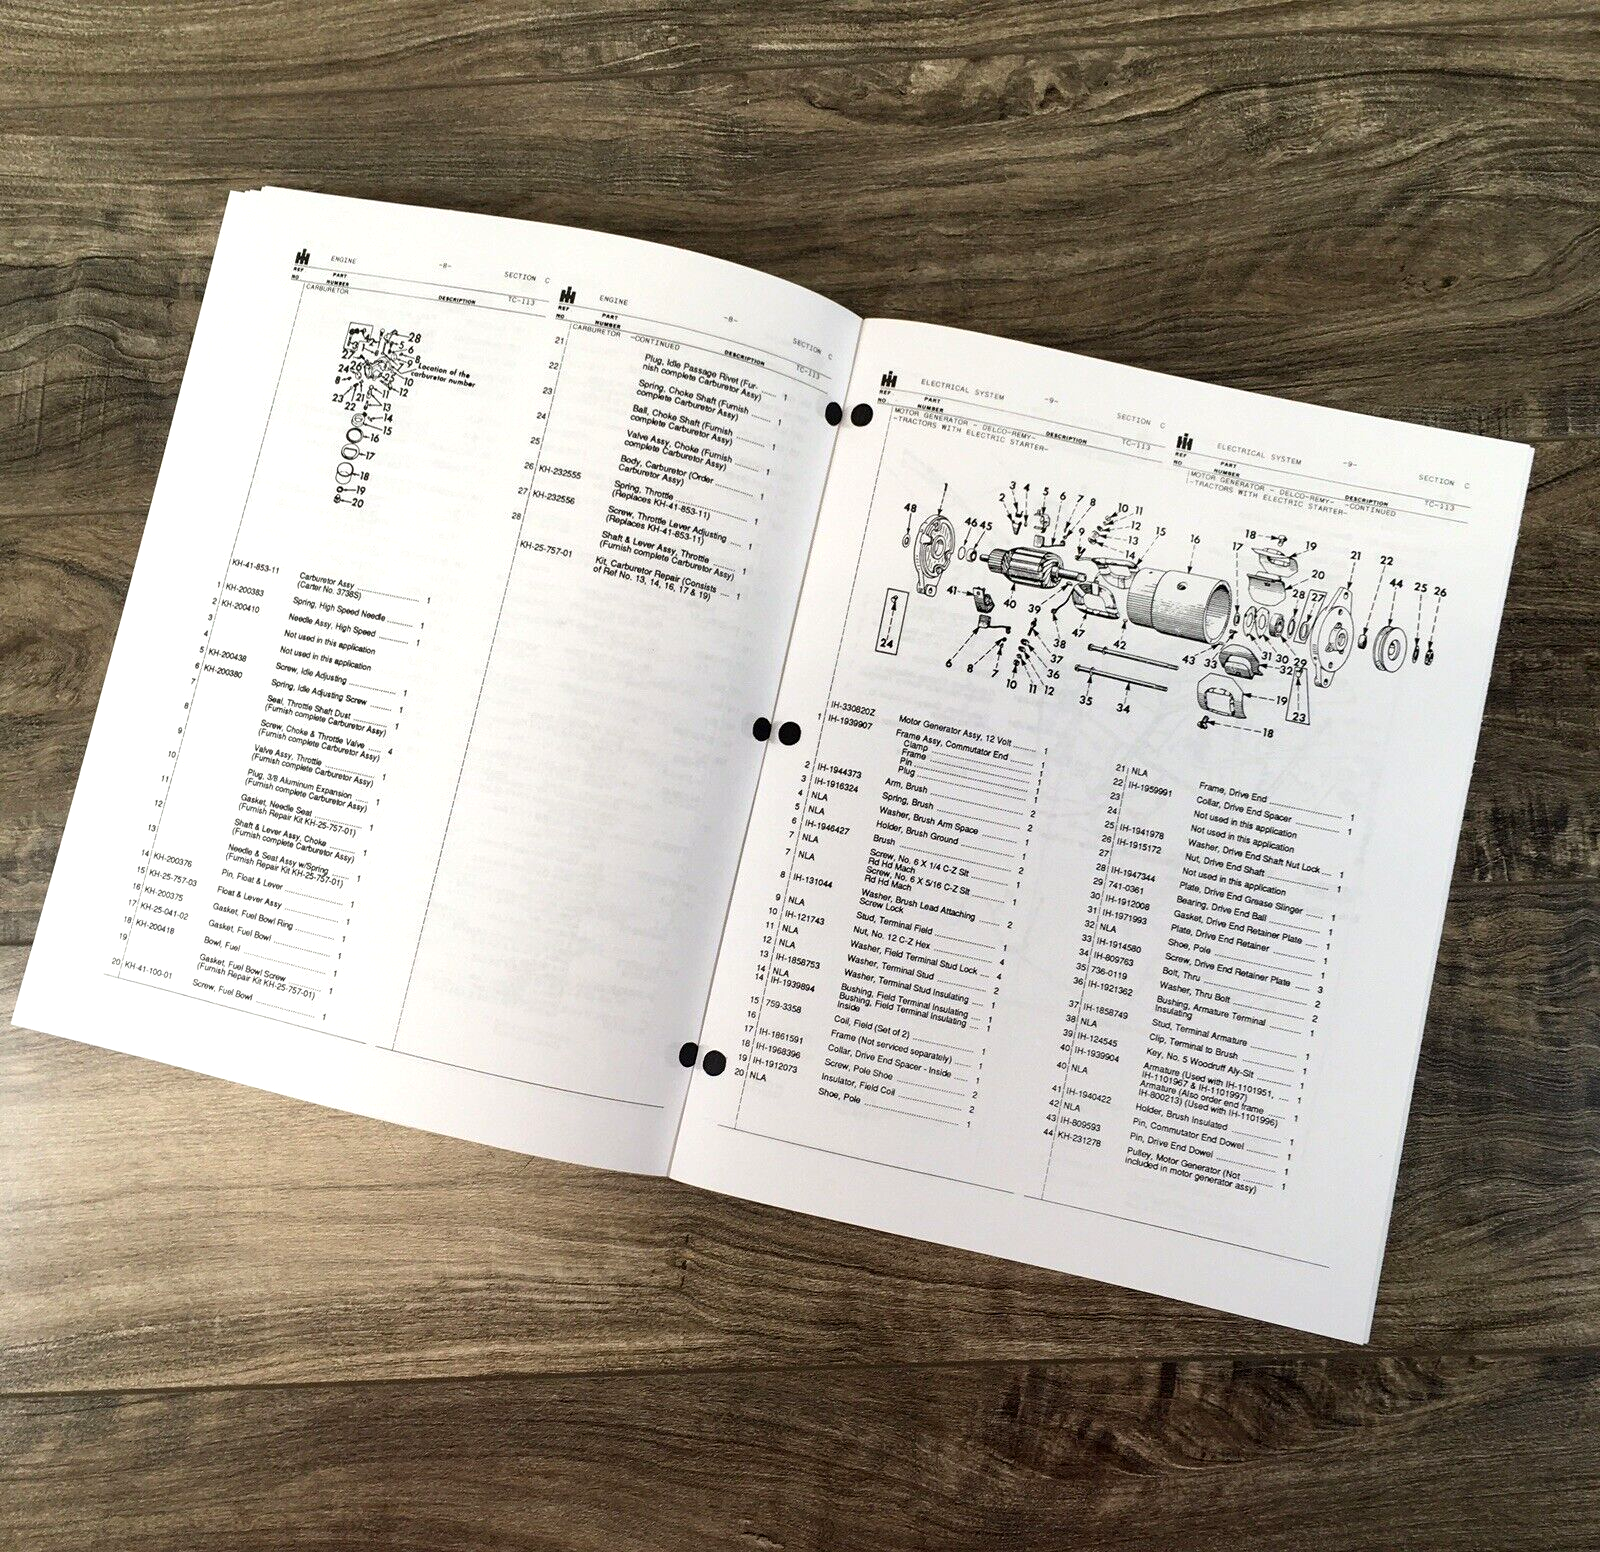 ENGINE -8- SECTION C
REF NO PART NUMBER DESCRIPTION TC-113
CARBURETOR
28
Location of the
carburetor number
16
17
18
19
20
KH-41-853-11 Carburetor Assy 1
(Carter No. 3738S)
1 KH-200383 Spring, High Speed Needle 1
2 KH-200410 Needle Assy, High Speed 1
3 Not used in this application
4 Not used in this application
5 KH-200438 Screw, Idle Adjusting 1
6 KH-200380 Spring, Idle Adjusting Screw 1
7 Seal, Throttle Shaft Dust 1
(Furnish complete Carburetor Assy)
8 Screw, Choke & Throttle Valve 4
(Furnish complete Carburetor Assy)
9 Valve Assy, Throttle 1
(Furnish complete Carburetor Assy)
10 Plug, 3/8 Aluminum Expansion 1
(Furnish complete Carburetor Assy)
11 Gasket, Needle Seat 1
(Furnish Repair Kit KH-25-757-01)
12 Shaft & Lever Assy, Choke 1
(Furnish complete Carburetor Assy)
13 Needle & Seat Assy w/Spring 1
(Furnish Repair Kit KH-25-757-01)
14 KH-200376 Pin, Float & Lever 1
15 KH-25-757-03 Float & Lever Assy 1
16 KH-200375 Gasket, Fuel Bowl Ring 1
17 KH-25-041-02 Gasket, Fuel Bowl 1
18 KH-200418 Bowl, Fuel 1
19 Gasket, Fuel Bowl Screw 1
(Furnish Repair Kit KH-25-757-01)
20 KH-41-100-01 Screw, Fuel Bowl 1
ENGINE -8- SECTION C
REF NO PART NUMBER DESCRIPTION TC-113
CARBURETOR -CONTINUED
21 Plug, Idle Passage Rivet (Fur- 1
nish complete Carburetor Assy)
22 Spring, Choke Shaft (Furnish 1
complete Carburetor Assy)
23 Ball, Choke Shaft (Furnish 1
complete Carburetor Assy)
24 Valve Assy, Choke (Furnish 1
complete Carburetor Assy)
25 Body, Carburetor (Order 1
Carburetor Assy)
26 KH-232555 Spring, Throttle 1
(Replaces KH-41-853-11)
27 KH-232556 Screw, Throttle Lever Adjusting 1
(Replaces KH-41-853-11)
28 Shaft & Lever Assy, Throttle 1
(Furnish complete Carburetor Assy)
KH-25-757-01 Kit, Carburetor Repair (Consists 1
of Ref No. 13, 14, 16, 17 & 19)
ELECTRICAL SYSTEM -9- SECTION C
REF NO PART NUMBER DESCRIPTION TC-113
MOTOR GENERATOR - DELCO-REMY-
-TRACTORS WITH ELECTRIC STARTER-
ELECTRICAL SYSTEM -9- SECTION C
REF NO PART NUMBER DESCRIPTION TC-113
MOTOR GENERATOR - DELCO-REMY- -CONTINUED
-TRACTORS WITH ELECTRIC STARTER-
48 1 46 45 2 3 4 5 6 7 8 9 10 11 12 13 14 15 16 17 18 19 20 21 22 44 25 26
41 40 39 38 47 42 43 33 31 30 29 28 27 32
24 6 8 7 10 11 12 36 37 35 34 19 23 18
IH-330820Z Motor Generator Assy, 12 Volt 1
1 IH-1939907 Frame Assy, Commutator End 1
Clamp 1
Frame 1
Pin 1
Plug 1
2 IH-1944373 Arm, Brush 2
3 IH-1916324 Spring, Brush 2
4 NLA Washer, Brush Arm Space 2
5 NLA Holder, Brush Ground 1
6 IH-1946427 Brush 2
7 NLA Screw, No. 6 X 1/4 C-Z Slt 1
Rd Hd Mach
7 NLA Screw, No. 6 X 5/16 C-Z Slt 1
Rd Hd Mach
8 IH-131044 Washer, Brush Lead Attaching 2
Screw Lock
9 NLA Stud, Terminal Field 1
10 IH-121743 Nut, No. 12 C-Z Hex 4
11 NLA Washer, Field Terminal Stud Lock 4
12 NLA Washer, Terminal Stud 2
13 IH-1858753 Washer, Terminal Stud Insulating 2
14 NLA Bushing, Field Terminal Insulating 1
14 IH-1939894 Bushing, Field Terminal Insulating 1
Inside
15 759-3358 Coil, Field (Set of 2) 1
16 Frame (Not serviced separately) 1
17 IH-1861591 Collar, Drive End Spacer - Inside 1
18 IH-1968396 Screw, Pole Shoe 2
19 IH-1912073 Insulator, Field Coil 2
20 NLA Shoe, Pole 1
21 NLA Frame, Drive End 1
22 IH-1959991 Collar, Drive End Spacer 1
23 Not used in this application
24 Not used in this application
25 IH-1941978 Washer, Drive End Shaft Nut Lock 1
26 IH-1915172 Nut, Drive End Shaft 1
27 Not used in this application
28 IH-1947344 Plate, Drive End Grease Slinger 1
29 741-0361 Bearing, Drive End Ball 1
30 IH-1912008 Gasket, Drive End Retainer Plate 1
31 IH-1971993 Plate, Drive End Retainer 1
32 NLA Shoe, Pole 1
33 IH-1914580 Screw, Drive End Retainer Plate 3
34 IH-809763 Bolt, Thru 2
35 736-0119 Washer, Thru Bolt 2
36 IH-1921362 Bushing, Armature Terminal 1
Insulating
37 IH-1858749 Stud, Terminal Armature 1
38 NLA Clip, Terminal to Brush 1
39 IH-124545 Key, No. 5 Woodruff Aly-Slt 1
40 IH-1939904 Armature (Used with IH-1101951, 1
IH-1101967 & IH-1101997)
40 NLA Armature (Also order end frame 1
IH-800213) (Used with IH-1101996)
41 IH-1940422 Holder, Brush Insulated 1
42 NLA Pin, Commutator End Dowel 1
43 IH-809593 Pin, Drive End Dowel 1
44 KH-231278 Pulley, Motor Generator (Not 1
included in motor generator assy)